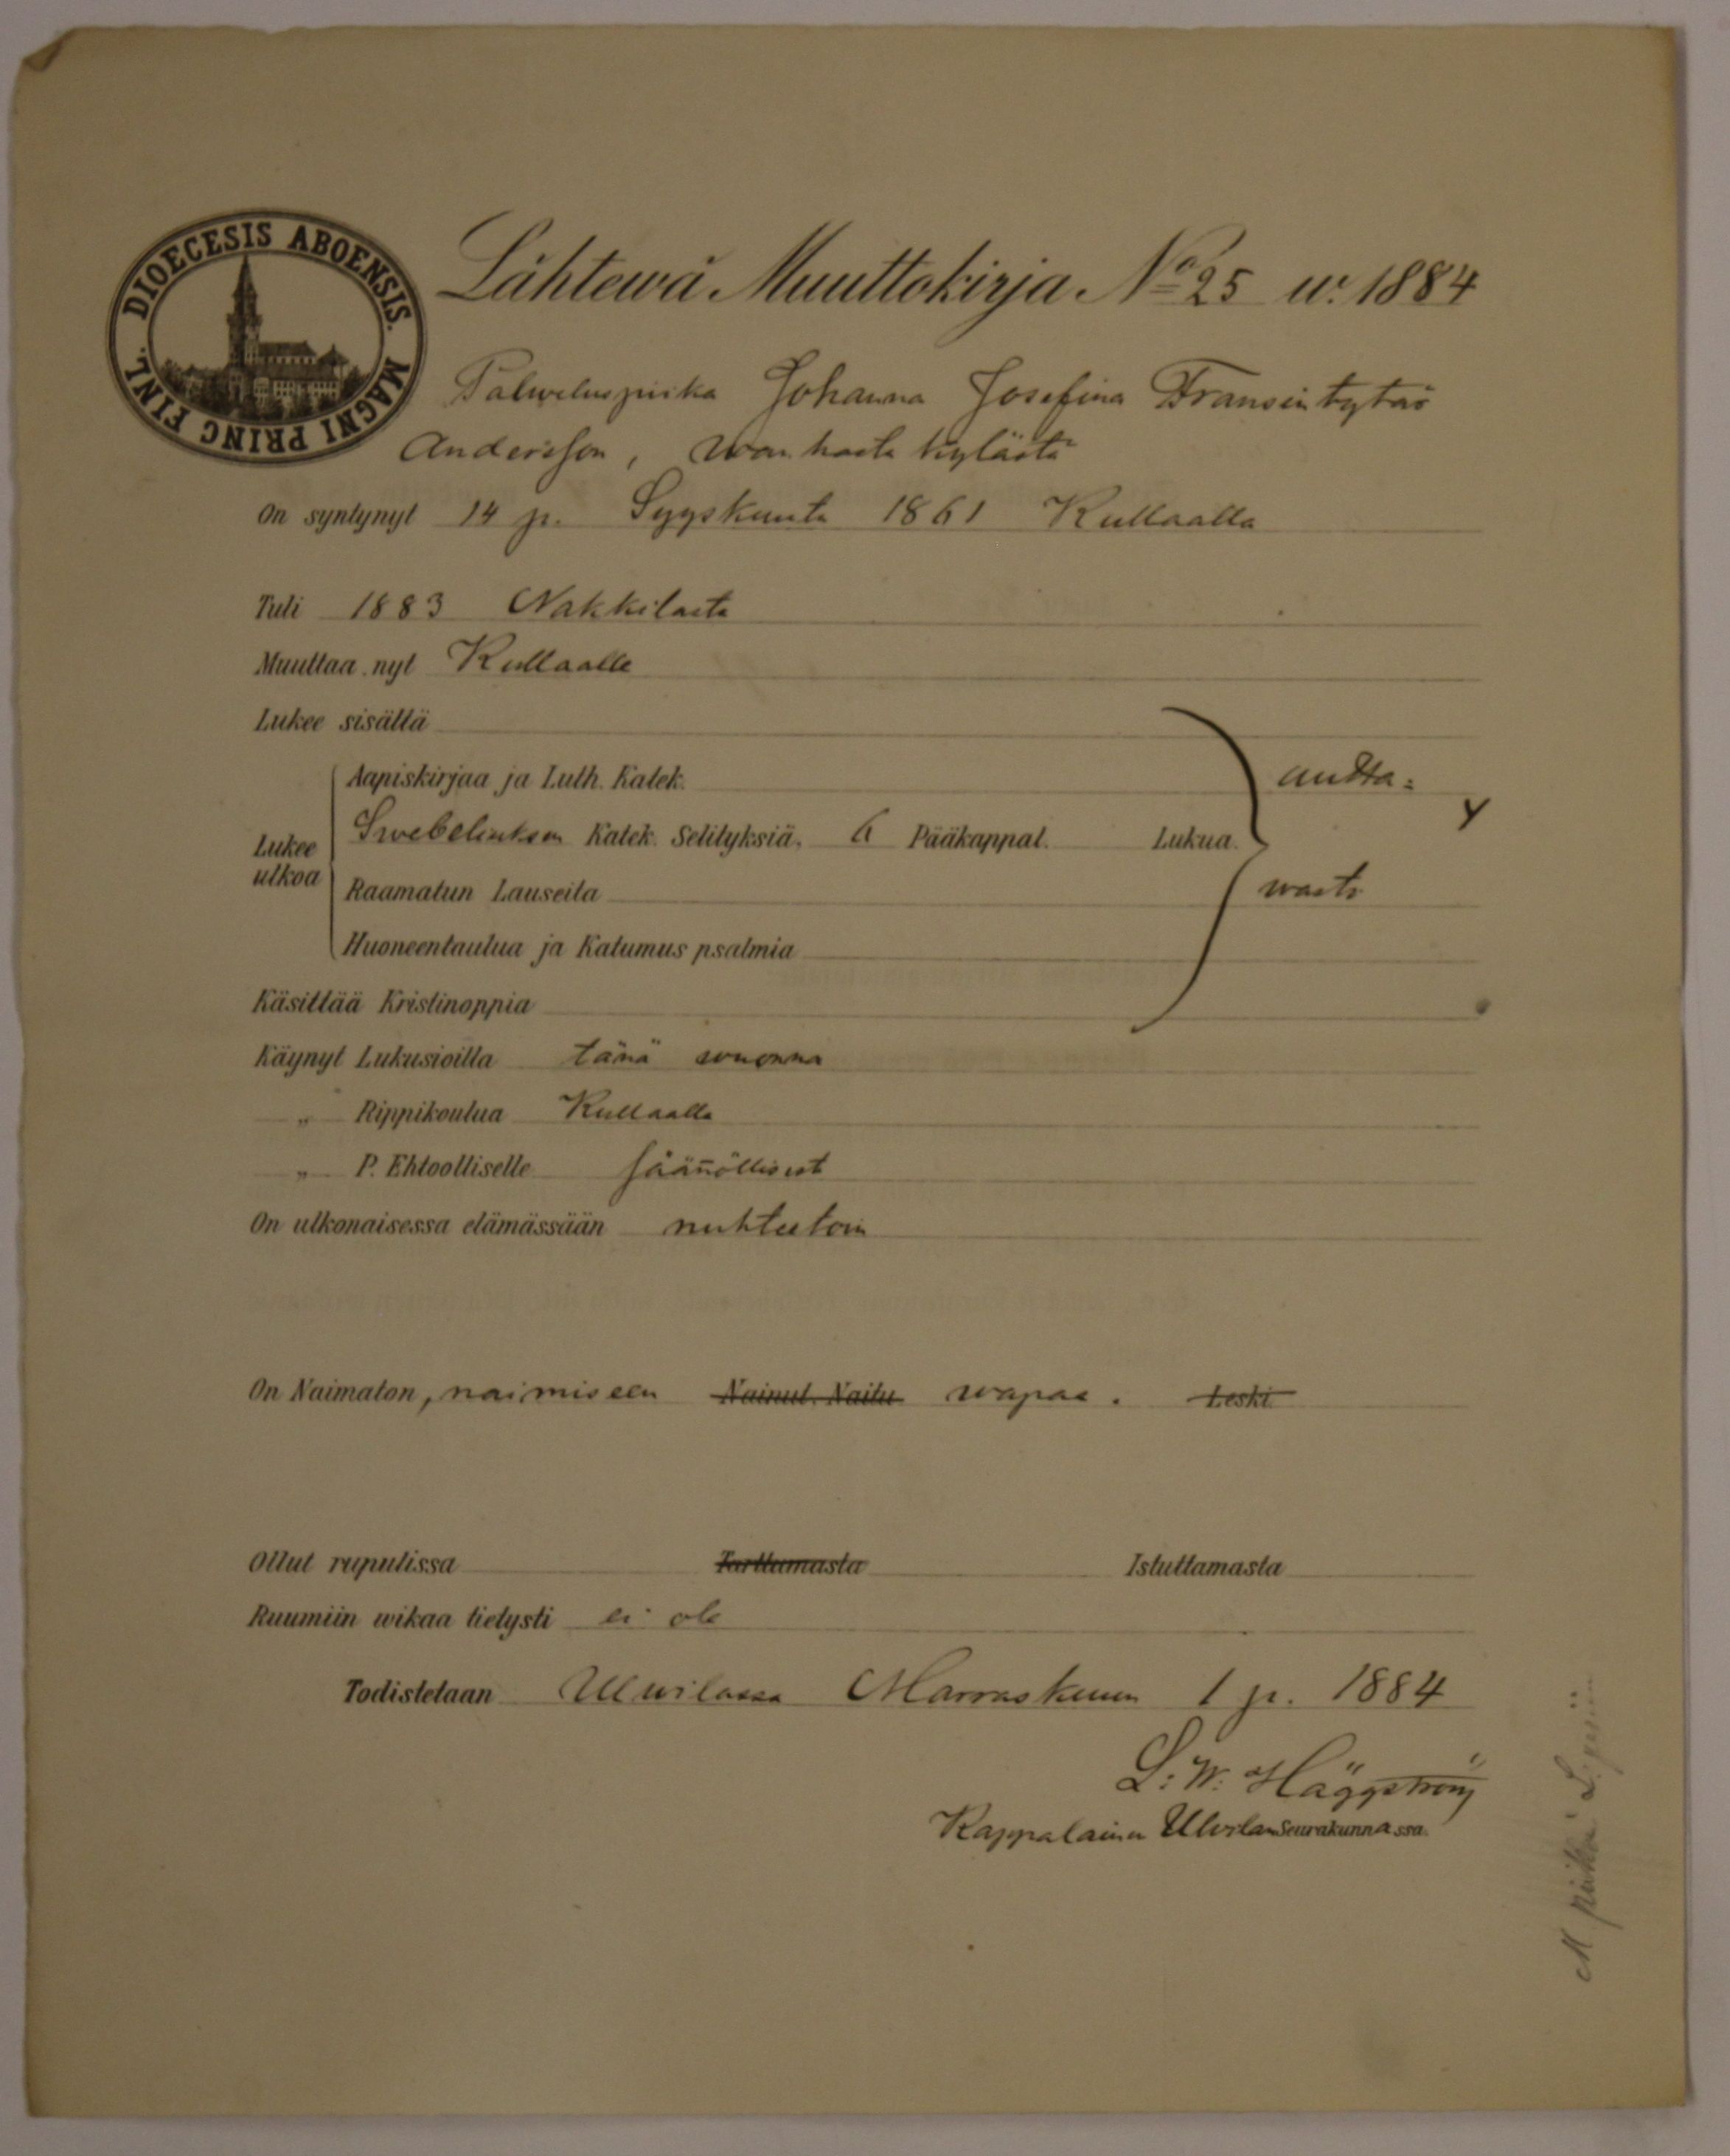 DIOECESIS ABOENSIS. MAGNI PRINC FINL.
Lähtewä Muuttokirja No 25 w. 1884
Palweluspiika Johanna Josefina Fransintytär
Andersson, Wanhasta kylästä
On syntynyt 14 p. Syyskuuta 1861 Kullaalla
Tuli 1883 Nakkilasta
Muuttaa nyt Kullaalle
Lukee sisältä
Aapiskirjaa ja Luth. Katek. autta=
Lukee ulkoa Swebeliuksen Katek. Selityksiä, 6 Pääkappal. Lukua.
Raamatun Lauseita wasti
Huoneentaulua ja Katumus psalmia
Käsittää Kristinoppia
Käynyt Lukusioilla tänä wuonna
" Rippikoulua Kullaalla
" P. Ehtoolliselle säännöllisesti
On ulkonaisessa elämässään nuhteetoin
On Naimaton, naimiseen Nainut, Naitu wapaa. Leski
Ollut rupulissa Tarttumasta Istuttamasta
Ruumiin wikaa tietysti ei ole
Todistetaan Ulwilassa Marraskuun 1 p. 1884
L: W: Häggström
Kappalainen Ulvilan Seurakunnassa.